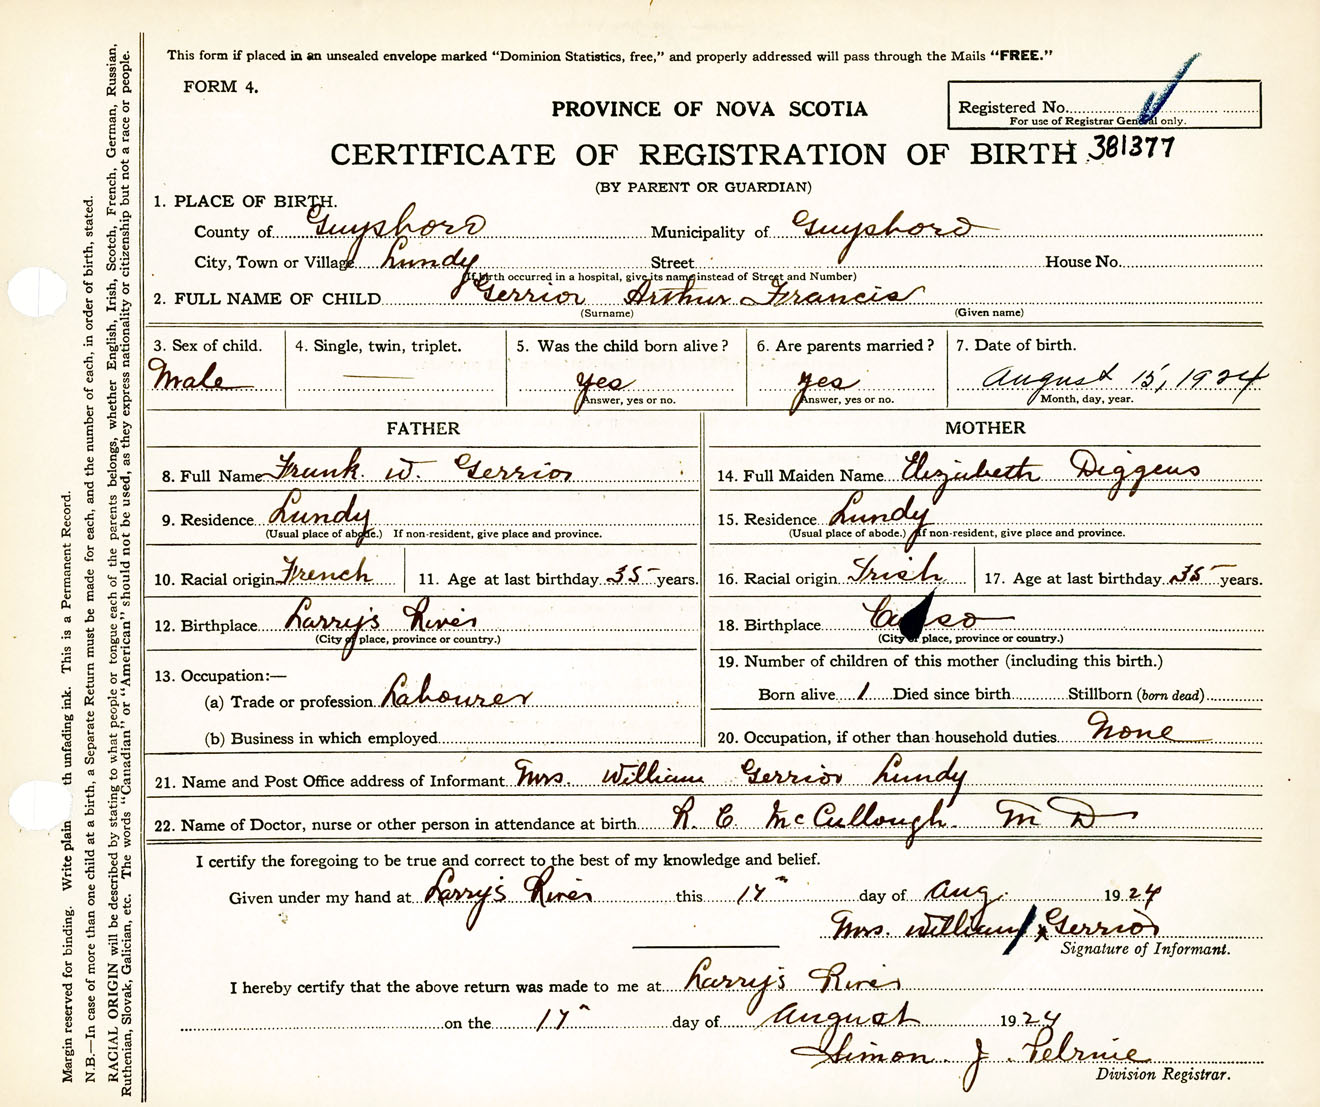 This form if placed in an unsealed envelope marked “Dominion Statistics, free,” and properly addressed will pass through the Mails “FREE.”
FORM 4.
PROVINCE OF NOVA SCOTIA
Registered No.
For use of Registrar General only.
CERTIFICATE OF REGISTRATION OF BIRTH 381377
(BY PARENT OR GUARDIAN)
1. PLACE OF BIRTH.
County of Guysboro Municipality of Guysboro
City, Town or Village Lundy Street House No.
(If birth occurred in a hospital, give its name instead of Street and Number)
2. FULL NAME OF CHILD Gerrior Arthur Francis
(Surname) (Given name)
3. Sex of child. 4. Single, twin, triplet. 5. Was the child born alive? 6. Are parents married? 7. Date of birth.
Male — yes yes August 15, 1924
Answer, yes or no. Answer, yes or no. Month, day, year.
FATHER MOTHER
8. Full Name Frank W. Gerrior 14. Full Maiden Name Elizabeth Diggens
9. Residence Lundy 15. Residence Lundy
(Usual place of abode.) If non-resident, give place and province. (Usual place of abode.) If non-resident, give place and province.
10. Racial origin French 11. Age at last birthday 35 years. 16. Racial origin Irish 17. Age at last birthday 35 years.
12. Birthplace Larry's River 18. Birthplace Canso
(City or place, province or country.) (City or place, province or country.)
13. Occupation:— 19. Number of children of this mother (including this birth.)
(a) Trade or profession Labourer Born alive 1 Died since birth Stillborn (born dead)
(b) Business in which employed 20. Occupation, if other than household duties None
21. Name and Post Office address of Informant Mrs. William Gerrior Lundy
22. Name of Doctor, nurse or other person in attendance at birth R. C. McCullough. M D
I certify the foregoing to be true and correct to the best of my knowledge and belief.
Given under my hand at Larry's River this 17th day of Aug. 1924
Mrs. William X Gerrior
Signature of Informant.
I hereby certify that the above return was made to me at Larry's River
on the 17 day of August 1924
Simon J. Pelrine
Division Registrar.
Margin reserved for binding. Write plain th unfading ink. This is a Permanent Record.
N.B.—In case of more than one child at a birth, a Separate Return must be made for each, and the number of each, in order of birth, stated.
RACIAL ORIGIN will be described by stating to what people or tongue each of the parents belongs, whether English, Irish, Scotch, French, German, Russian,
Ruthenian, Slovak, Galician, etc. The words “Canadian” or “American” should not be used, as they express nationality or citizenship but not a race or people.